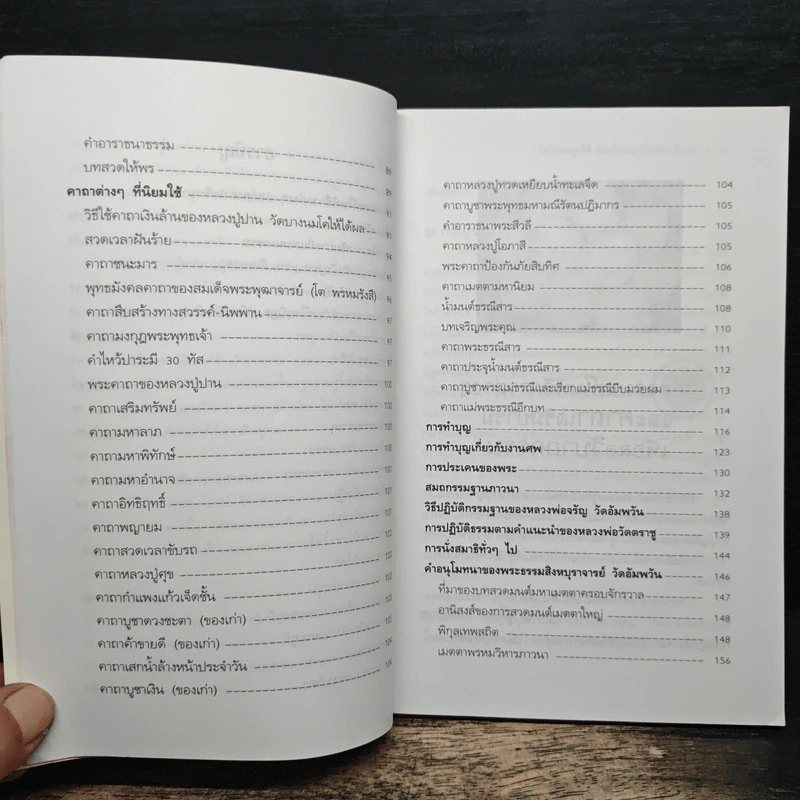 คำอาราธนาธรรม 89
บทสวดให้พร 89
คาถาต่างๆ ที่นิยมใช้ 91
วิธีใช้คาถาเงินล้านของหลวงปู่ปาน วัดบางนมโคให้ได้ผล 91
สวดเวลาฝันร้าย 94
คาถาชนะมาร 95
พุทธมังคลคาถาของสมเด็จพระพุฒาจารย์ (โต พรหมรังสี) 96
คาถาสืบสร้างทางสวรรค์-นิพพาน 97
คาถามงกุฎพระพุทธเจ้า 97
คำไหว้ปาระมี 30 ทัส 97
พระคาถาของหลวงปู่ปาน 100
คาถาเสริมทรัพย์ 100
คาถามหาลาภ 100
คาถามหาพิทักษ์ 100
คาถามหาอำนาจ 101
คาถาอิทธิฤทธิ์ 101
คาถาพญายม 102
คาถาสวดเวลาขับรถ 102
คาถาหลวงปู่ศุข 102
คาถากำแพงแก้วเจ็ดชั้น 102
คาถาบูชาดวงชะตา (ของเก่า) 103
คาถาค้าขายดี (ของเก่า) 103
คาถาเสกน้ำล้างหน้าประจำวัน 104
คาถาบูชาเงิน (ของเก่า)
คาถาหลวงปู่ทวดเหยียบน้ำทะเลจืด 104
คาถาบูชาพระพุทธมหามณีรัตนปฏิมากร 105
คำอาราธนาพระสีวลี 105
คาถาหลวงปู่โอภาสี 105
พระคาถาป้องกันภัยสิบทิศ 106
คาถาเมตตามหานิยม 108
น้ำมนต์ธรณีสาร 108
บทเจริญพระคุณ 110
คาถาพระธรณีสาร 111
คาถาประจุน้ำมนต์ธรณีสาร 112
คาถาบูชาพระแม่ธรณีและเรียกแม่ธรณีบีบมวยผม 113
คาถาแม่พระธรณีอีกบท 114
การทำบุญ 116
การทำบุญเกี่ยวกับงานศพ 123
การประเคนของพระ 130
สมถกรรมฐานภาวนา 132
วิธีปฏิบัติกรรมฐานของหลวงพ่อจรัญ วัดอัมพวัน 138
การปฏิบัติธรรมตามคำแนะนำของหลวงพ่อวัดตราชู 139
การนั่งสมาธิทั่วๆ ไป 144
คำอนุโมทนาของพระธรรมสิงหบุราจารย์ วัดอัมพวัน 146
ที่มาของบทสวดมนต์มหาเมตตาครอบจักรวาล 147
อานิสงส์ของการสวดมนต์เมตตาใหญ่ 148
พิกุลเทพสถิต 148
เมตตาพรหมวิหารภาวนา 156